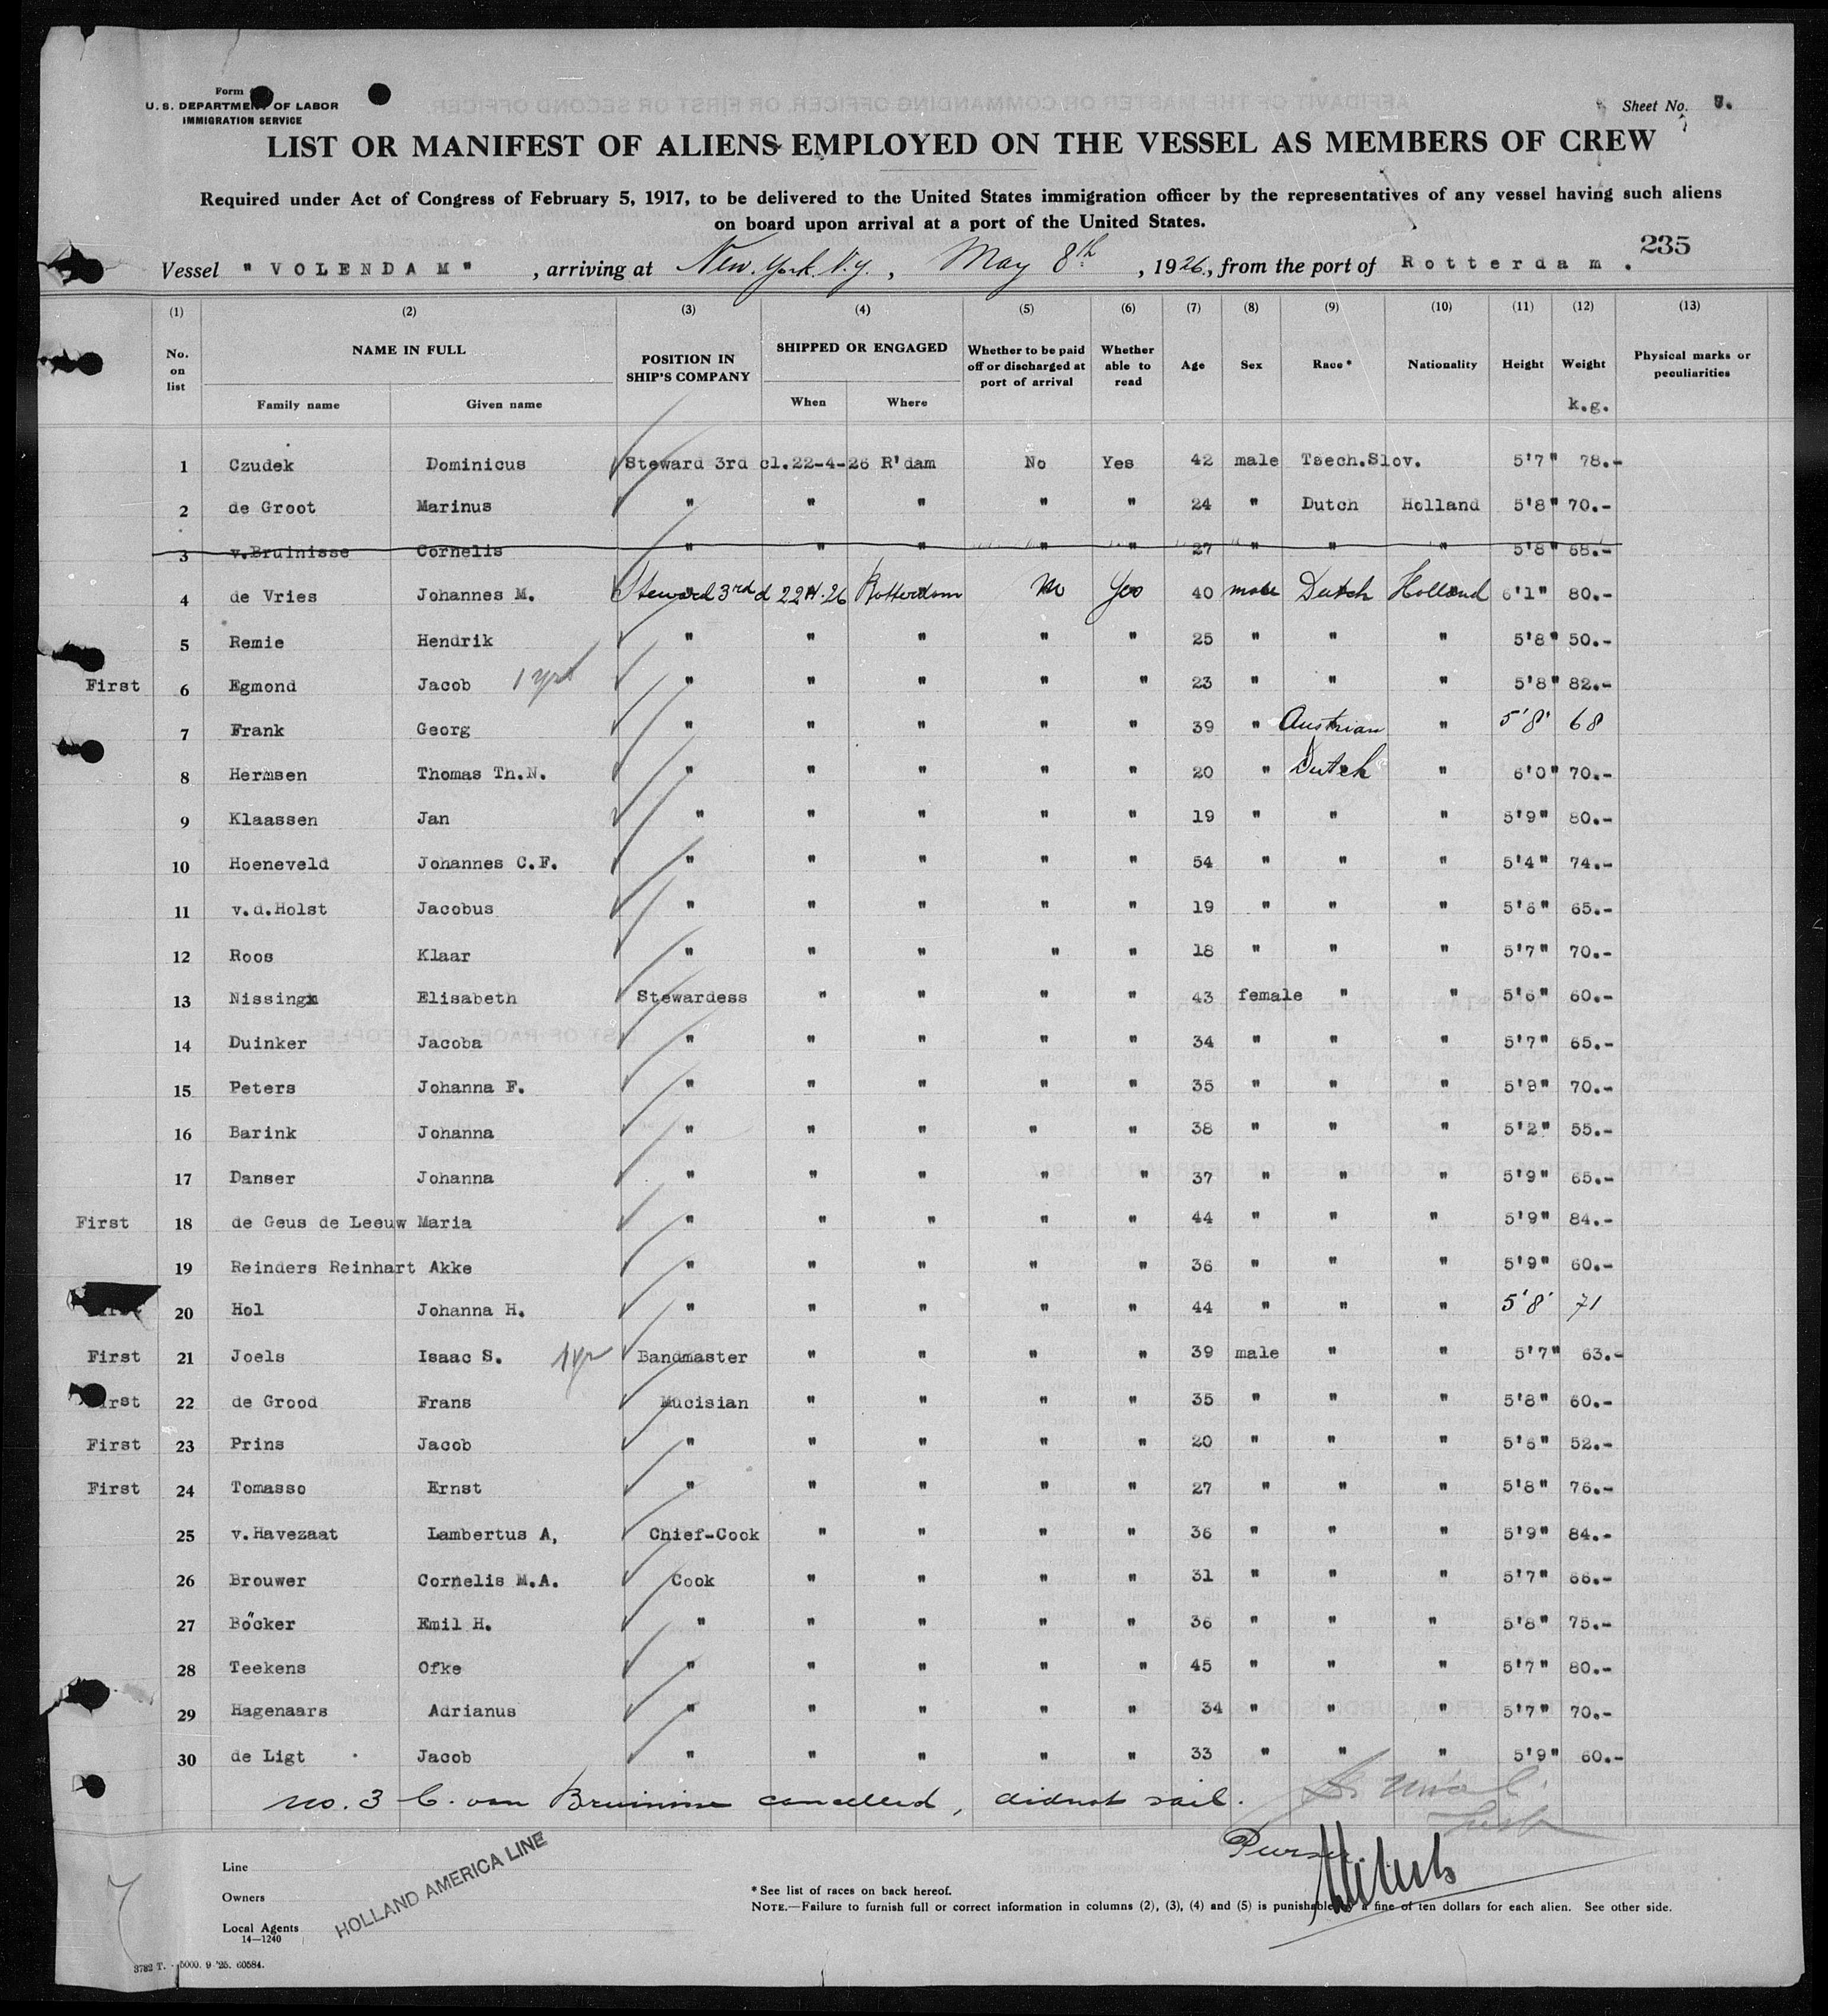 Form
U. S. DEPARTMENT OF LABOR
IMMIGRATION SERVICE
Sheet No. 7.
LIST OR MANIFEST OF ALIENS EMPLOYED ON THE VESSEL AS MEMBERS OF CREW
Required under Act of Congress of February 5, 1917, to be delivered to the United States immigration officer by the representatives of any vessel having such aliens
on board upon arrival at a port of the United States.
235
Vessel "VOLENDAM", arriving at New York N.y., May 8th, 1926, from the port of Rotterdam.
(1) (2) (3) (4) (5) (6) (7) (8) (9) (10) (11) (12) (13)
No. on list NAME IN FULL POSITION IN SHIP'S COMPANY SHIPPED OR ENGAGED Whether to be paid off or discharged at port of arrival Whether able to read Age Sex Race* Nationality Height Weight Physical marks or peculiarities
Family name Given name When Where k.g.
1 Czudek Dominicus Steward 3rd cl. 22-4-26 R'dam No Yes 42 male Tsech.Slov. 5'7" 78.-
2 de Groot Marinus " " " " " 24 " Dutch Holland 5'8" 70.-
3 v.Bruinisse Cornelis " " " " " 27 " " " 5'8" 65.-
4 de Vries Johannes M. Steward 3rd cl 22-4-26 Rotterdam No Yes 40 male Dutch Holland 6'1" 80.-
5 Remie Hendrik " " " " " 25 " " " 5'8" 50.-
First 6 Egmond Jacob 1 yr " " " " " 23 " " " 5'8" 82.-
7 Frank Georg " " " " " 39 " Austrian " 5'8' 68
8 Hermsen Thomas Th.N. " " " " " 20 " Dutch " 6'0" 70.-
9 Klaassen Jan " " " " " 19 " " " 5'9" 80.-
10 Hoeneveld Johannes C.F. " " " " " 54 " " " 5'4" 74.-
11 v.d.Holst Jacobus " " " " " 19 " " " 5'6" 65.-
12 Roos Klaar " " " " " 18 " " " 5'7" 70.-
13 Nissing Elisabeth Stewardess " " " " 43 female " " 5'6" 60.-
14 Duinker Jacoba " " " " " 34 " " " 5'7" 65.-
15 Peters Johanna F. " " " " " 35 " " " 5'9" 70.-
16 Barink Johanna " " " " " 38 " " " 5'2" 55.-
17 Danser Johanna " " " " " 37 " " " 5'9" 65.-
First 18 de Geus de Leeuw Maria " " " " " 44 " " " 5'9" 84.-
19 Reinders Reinhart Akke " " " " " 36 " " " 5'9" 60.-
First 20 Hol Johanna H. " " " " " 44 " " " 5'8' 71
First 21 Joels Isaac S. 1 yr Bandmaster " " " " 39 male " " 5'7" 63.-
First 22 de Grood Frans Mucisian " " " " 35 " " " 5'8" 60.-
First 23 Prins Jacob " " " " " 20 " " " 5'6" 52.-
First 24 Tomasso Ernst " " " " " 27 " " " 5'8" 76.-
25 v.Havezaat Lambertus A, Chief-Cook " " " " 36 " " " 5'9" 84.-
26 Brouwer Cornelis M.A. Cook " " " " 31 " " " 5'7" 66.-
27 Böcker Emil H. " " " " " 36 " " " 5'8" 75.-
28 Teekens Ofke " " " " " 45 " " " 5'7" 80.-
29 Hagenaars Adrianus " " " " " 34 " " " 5'7" 70.-
30 de Ligt Jacob " " " " " 33 " " " 5'9" 60.-
no. 3 C. van Bruinisse cancelled, did not sail.
Purser
Line
Owners
Local Agents
HOLLAND AMERICA LINE
14—1240
* See list of races on back hereof.
NOTE.—Failure to furnish full or correct information in columns (2), (3), (4) and (5) is punishable by a fine of ten dollars for each alien. See other side.
7
3782 T. 5000. 9-'25. 60584.